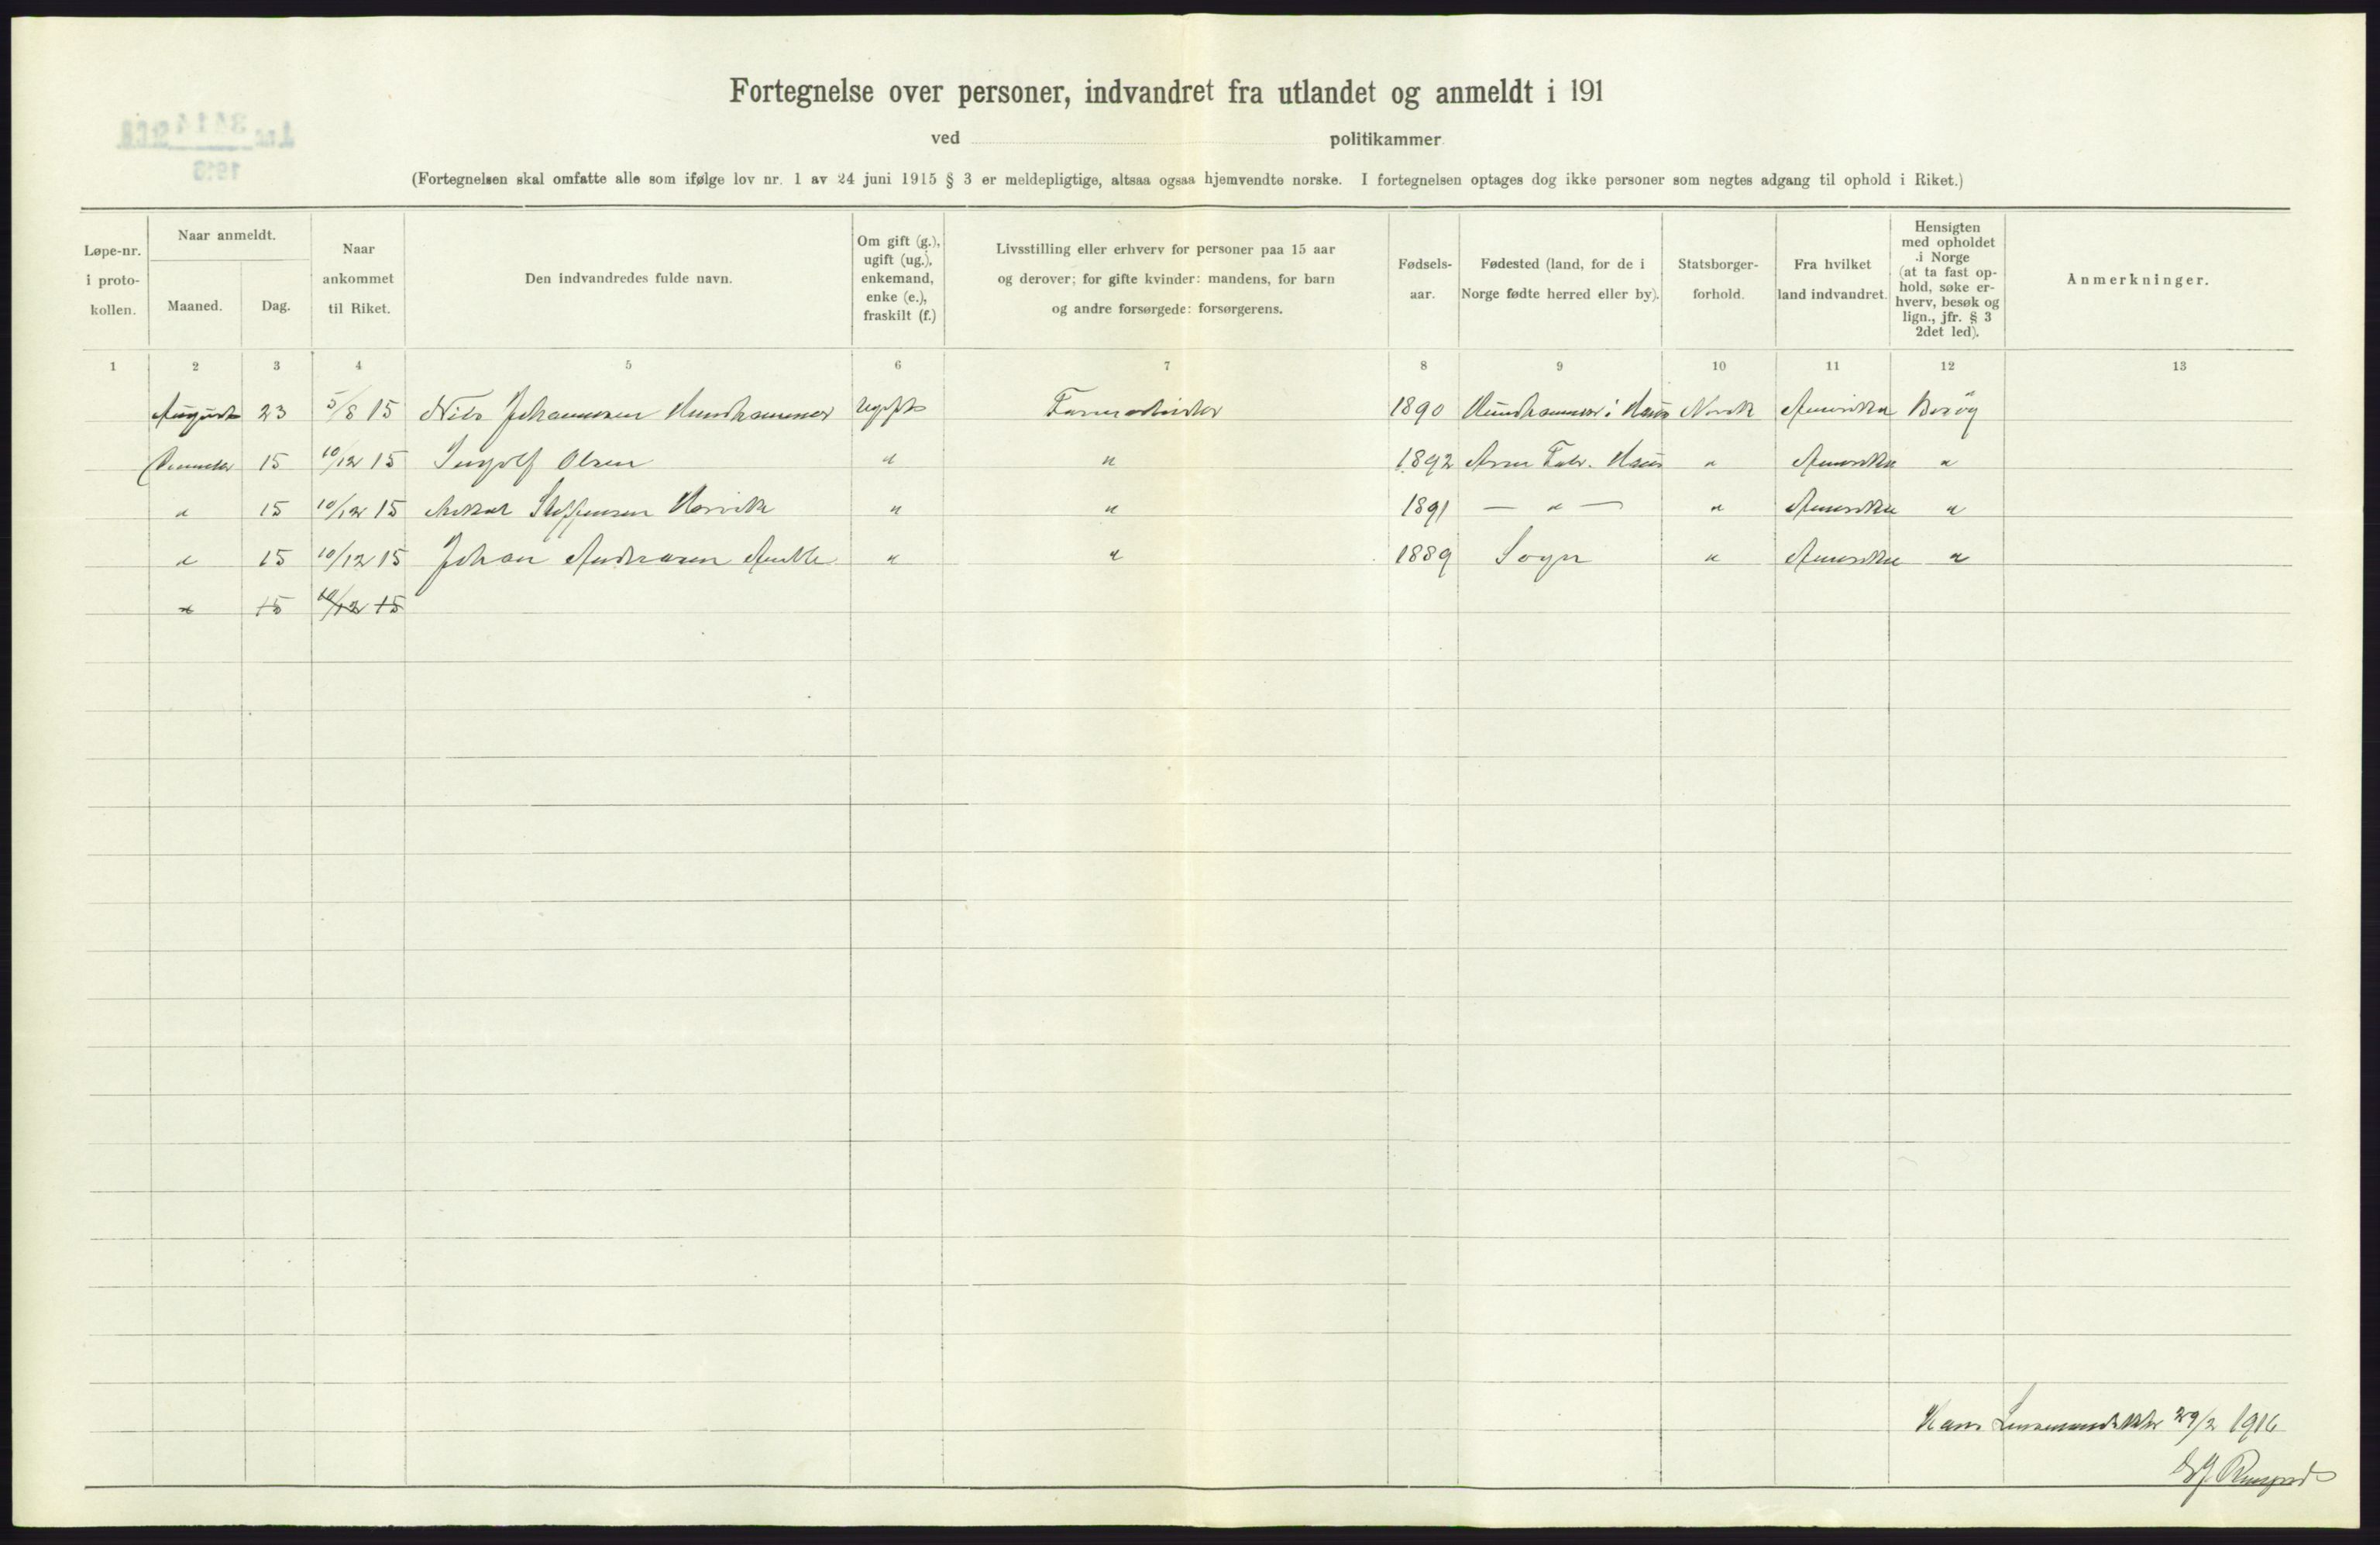 Fortegnelse over personer, indvandret fra utlandet og anmeldt i 191
ved politikammer.
(Fortegnelsen skal omfatte alle som ifølge lov nr. 1 av 24 juni 1915 § 3 er meldepligtige, altsaa ogsaa hjemvendte norske. I fortegnelsen optages dog ikke personer som negtes adgang til ophold i Riket.)
Løpe-nr. i proto-kollen.
Naar anmeldt.
Maaned.
Dag.
Naar ankommet til Riket.
Den indvandredes fulde navn.
Om gift (g.), ugift (ug.), enkemand, enke (e.), fraskilt (f.)
Livsstilling eller erhverv for personer paa 15 aar og derover; for gifte kvinder: mandens, for barn og andre forsørgede: forsørgerens.
Fødsels-aar.
Fødested (land, for de i Norge fødte herred eller by).
Statsborger-forhold.
Fra hvilket land indvandret.
Hensigten med opholdet i Norge (at ta fast op-hold, søke er-hverv, besøk og lign., jfr. § 3 2det led).
Anmerkninger.
1 2 3 4 5 6 7 8 9 10 11 12 13
August 23 5/8 15 Nils Johannesen Mundhammer Ugift Farmarbeider 1890 Mundhammer i Haus Norsk Amerika Besøg
December 15 10/12 15 Ingolf Olsen " " 1892 Arne Fabr. Haus " Amerika "
" 15 10/12 15 Steffensen " " 1891 — " — " Amerika "
" 15 10/12 15 Johan Andreasen Amble " " 1889 Sogn " Amerika "
" 15 10/12 15
Haus 29/2 1916